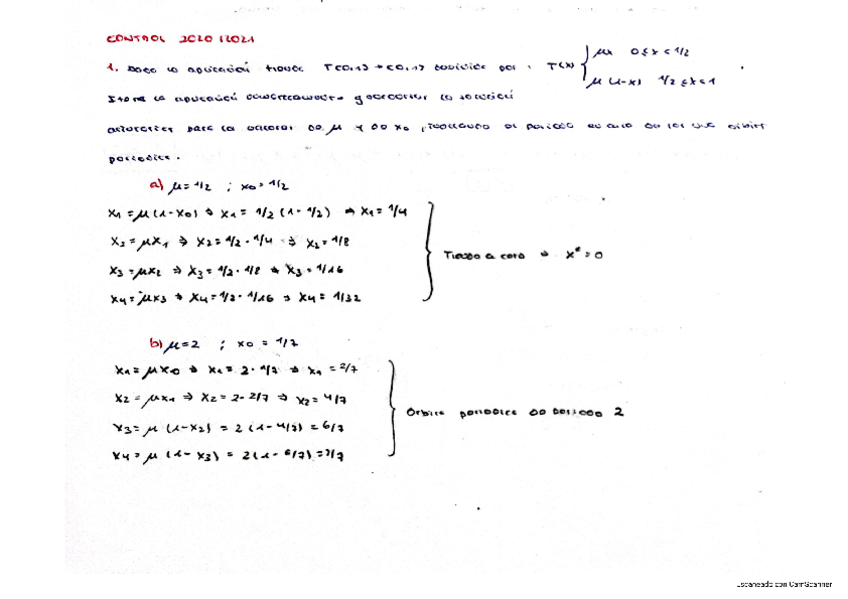 CONTROL 2020/2021
1. Dada la aplicación tienda T[0,1] → [0,1] definida por: T(x) { μx 0≤x<1/2
μ(1-x) 1/2≤x≤1
Itera la aplicación y la solución
para los valores de μ y de x0, indicando el periodo en caso de ser una órbita
periodica.
a) μ=1/2 ; x0=1/2
x1=μ(1-x0) ⇒ x1=1/2(1-1/2) ⇒ x1=1/4
x2=μx1 ⇒ x2=1/2·1/4 ⇒ x2=1/8
x3=μx2 ⇒ x3=1/2·1/8 ⇒ x3=1/16
x4=μx3 ⇒ x4=1/2·1/16 ⇒ x4=1/32
Tiende a cero ⇒ x*=0
b) μ=2 ; x0=1/7
x1=μx0 ⇒ x1=2·1/7 ⇒ x1=2/7
x2=μx1 ⇒ x2=2·2/7 ⇒ x2=4/7
x3=μ(1-x2)=2(1-4/7)=6/7
x4=μ(1-x3)=2(1-6/7)=2/7
Orbita periodica de periodo 2
Escaneado con CamScanner